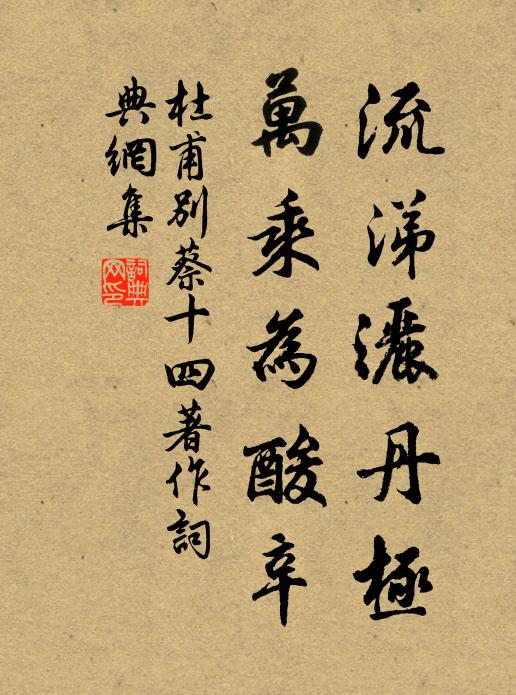 流涕灑丹極
萬乘為酸辛
杜甫別蔡十四著作詞
典網集
詞典網印